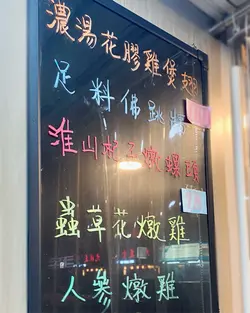 濃湯花膠雞煲翅
足料佛跳牆
淮山杞子燉螺頭
蟲草花燉雞
人參燉雞